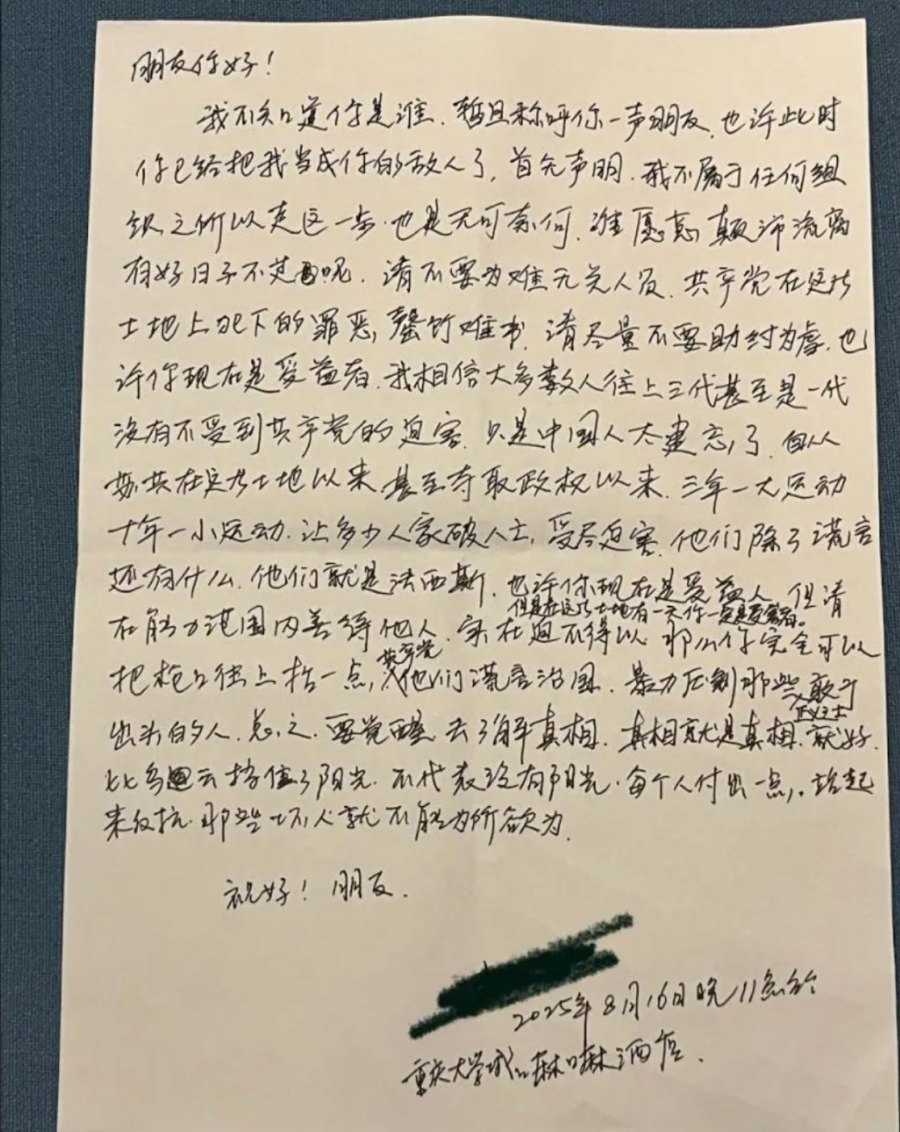 朋友你好！
我不知道你是谁、暂且称呼你一声朋友，也许此时
你已给把我当成你的敌人了，首先声明、我不属于任何组
织之所以走这一步也是无可奈何、谁愿意颠沛流离
有好日子不过呢、请不要为难无关人员、共产党在这片
土地上犯下的罪恶，罄竹难书、请尽量不要助纣为虐、也
许你现在是受益者、我相信大多数人往上三代甚至是一代
没有不受到共产党的迫害、只是中国人太健忘了、自从
苏共在这片土地以来、甚至夺取政权以来、三年一大运动
十年一小运动、让多少人家破人亡，受尽迫害、他们除了谎言
还有什么、他们就是法西斯、也许你现在是受益人、但请
但是在这片土地有一天你一定是受害者。
在能力范围内善待他人、实在迫不得以、那么你完全可以
把枪口往上抬一点，共产党他们谎言治国、暴力压制那些敢于
正义之士
出头的人、总之、要觉醒、去了解真相、真相就是真相、就好
比乌云挡住了阳光、不代表没有阳光、每个人付出一点，站起
来反抗、那些坏人就不能为所欲为、
祝好！朋友、
2025年8月16日晚11点
重庆大学城
酒店、